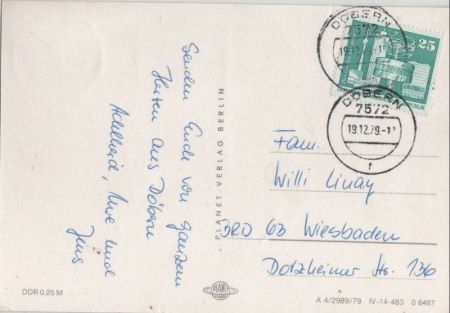 Senden Euch von ganzem
Herzen aus Döbern
Adelheid, Uwe und
Jens
PLANET VERLAG BERLIN
DÖBERN
7572
25
DÖBERN
7572
19.12.79.-1
f
Fam.
Willi
BRD 62 Wiesbaden
Dotzheimer Str. 136
DDR 0,25 M
PLANET
A 4/2989/79 IV-14-483 0 6487